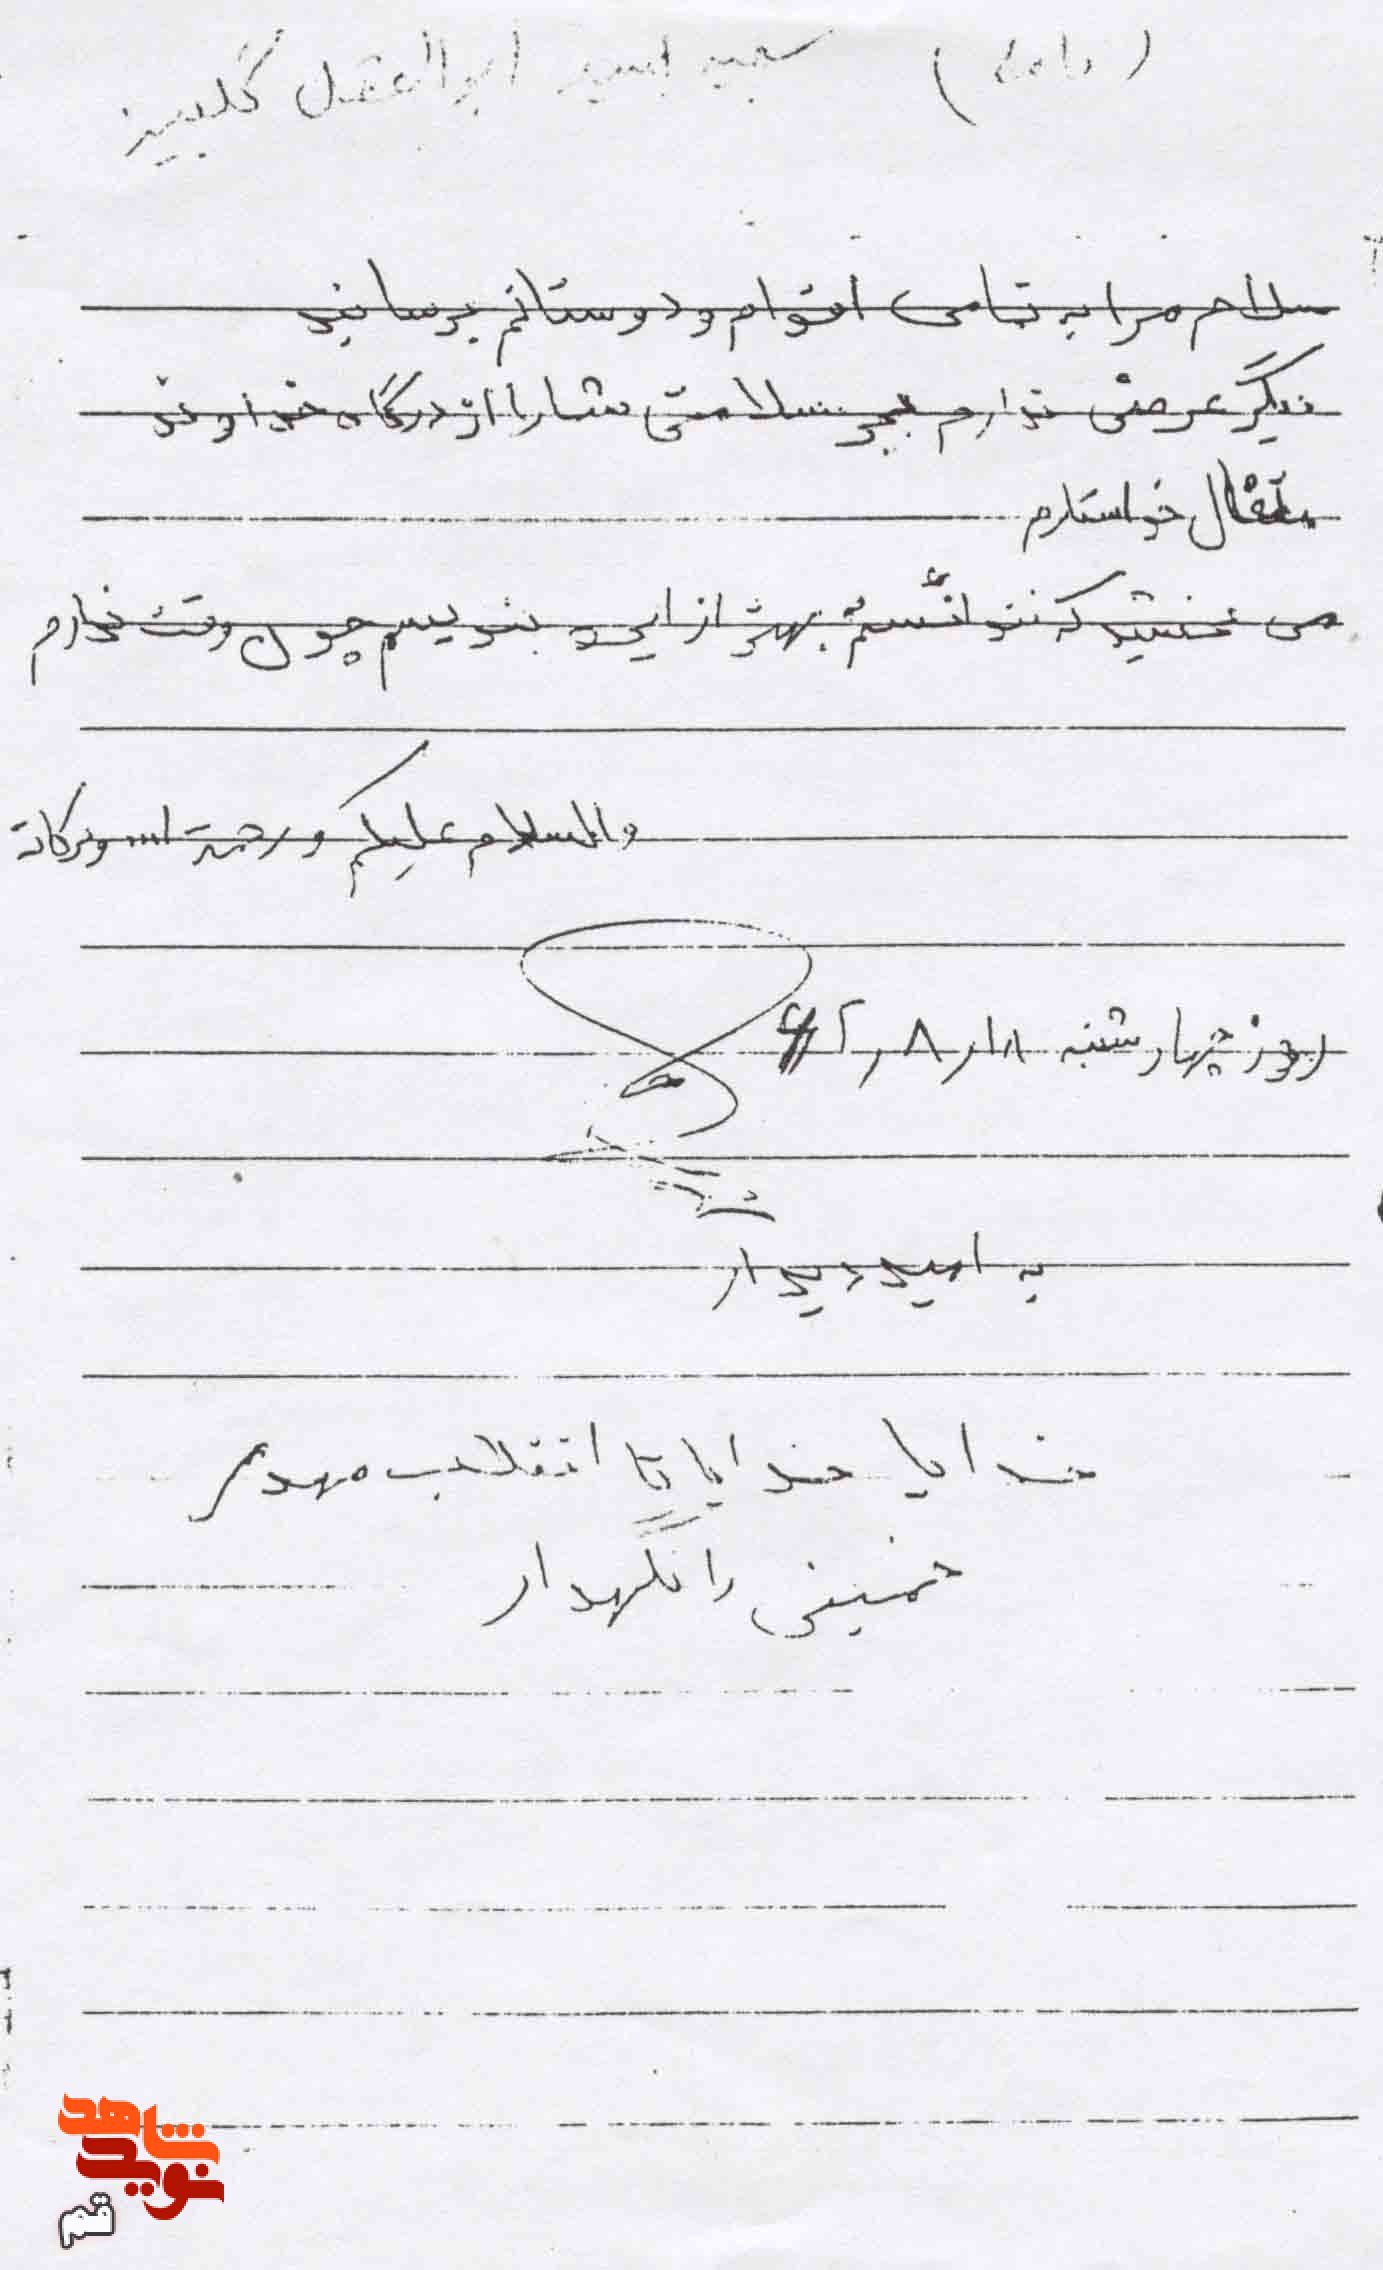 (نامه) شهید سید ابوالفضل گلبیز
سلام مرا به تمامی اقوام و دوستانم برسانید
دیگر عرضی ندارم بجز سلامتی شما را از درگاه خداوند
متعال خواستارم
می بخشید که نتوانستم بهتر از این بنویسم چون وقت ندارم
والسلام علیکم و رحمة ا... وبرکاته
روز چهارشنبه ۱۸ر۸ر۶۲
به امید دیدار
خدایا خدایا تا انقلاب مهدی
خمینی را نگهدار
شاهد
نوید
قم